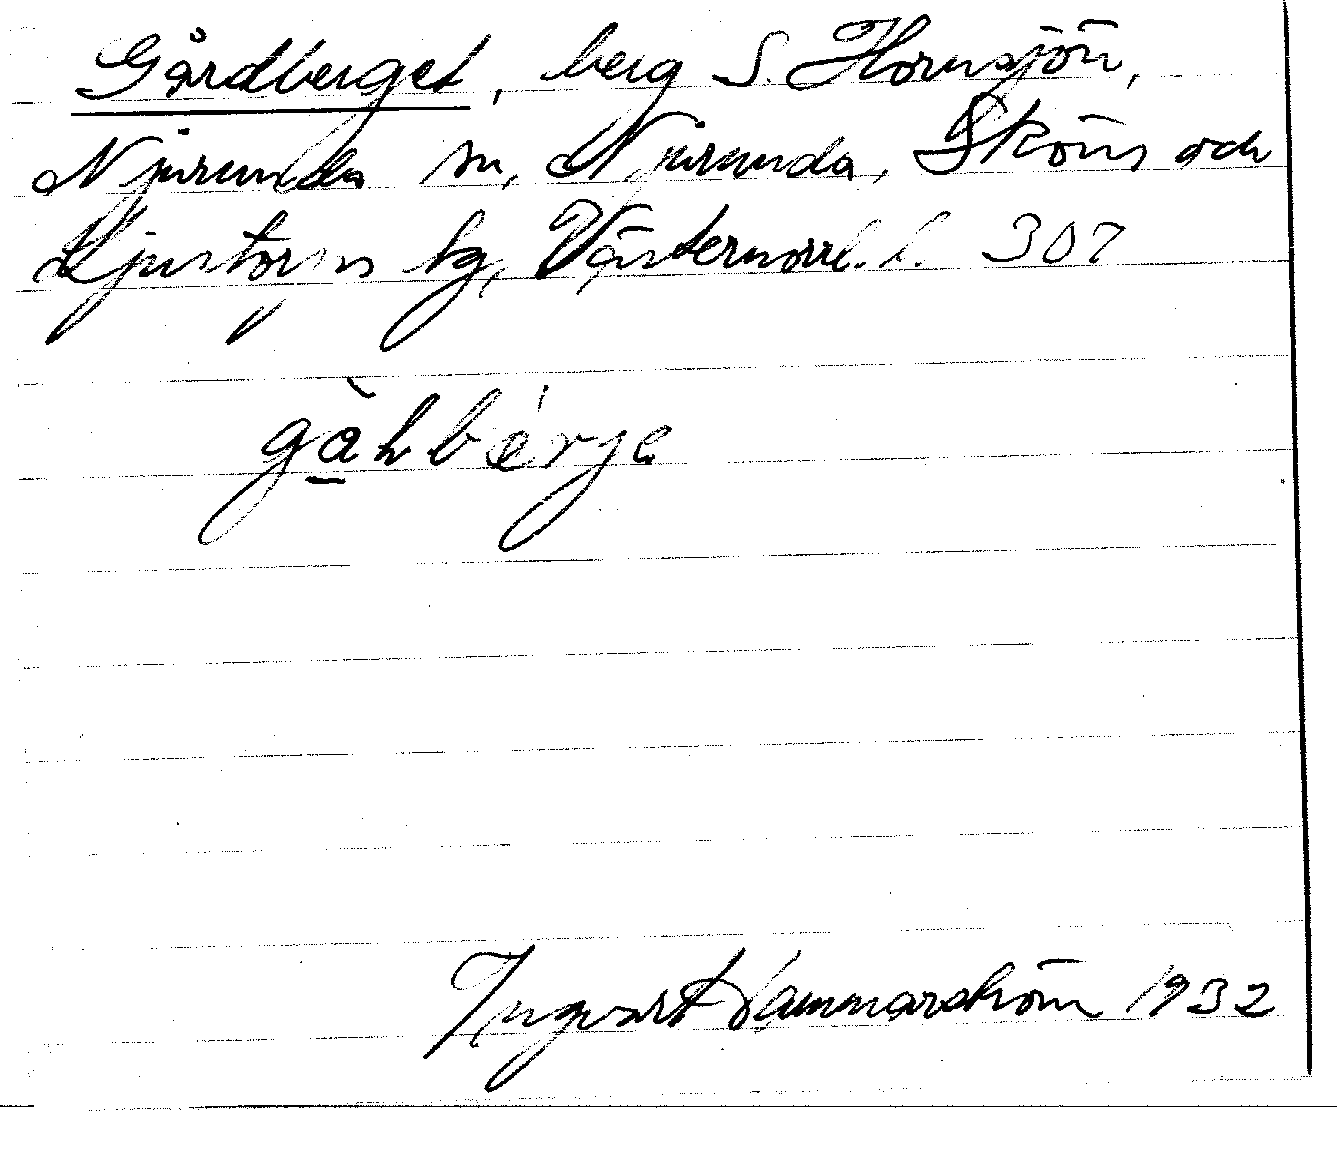 Gårdberget, berg S. Hornsjön,
Njurunda sn, Njurunda, Sköns och
Ljustorps tg, Västernorrl. l. 307
gàhbérje
Ingvart Hammarström 1932